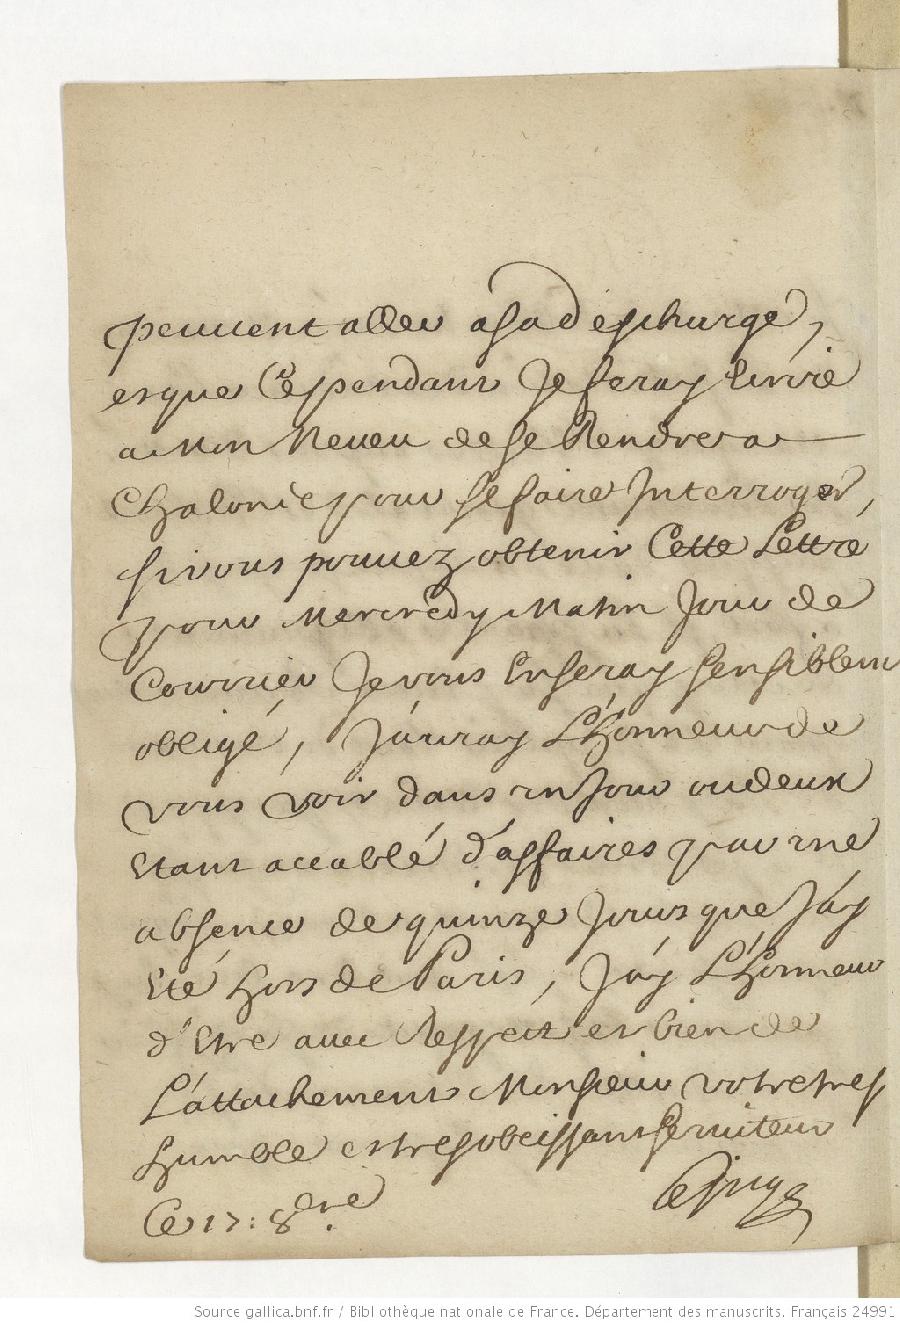 peuuent aller a sa descharge,
et que Cependant Je feray Ecrire
a Mon Neueu de Se Rendre a
Chalons pour se faire Interroger,
si vous pouuez obtenir Cette Lettre
pour Mercredy Matin Jour de
Courrier Je vous En seray sensiblem
obligé, J'auray L'honneur de
vous voir dans un Jour ou deux
Etant accablé d'affaires par une
absence de quinze Jours que J'ay
Eté hors de Paris, J'ay L'honneur
d'Etre auec Respect et bien de
L'attachement Monsieur votre tres
humble et tres obeissant seruiteur
Ce 17: 8bre.
Source gallica.bnf.fr / Bibliothèque nationale de France. Département des manuscrits. Français 24991